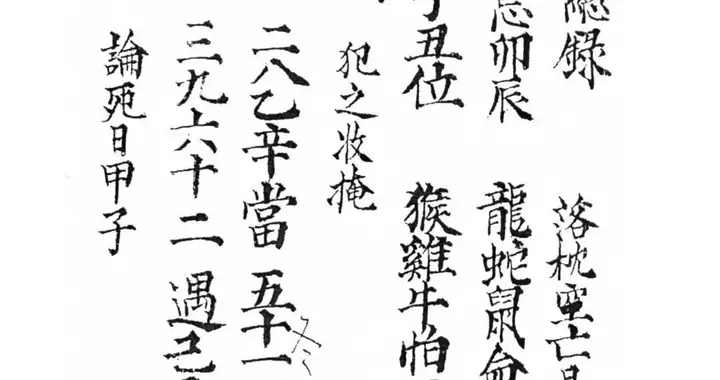 錄 落枕空亡日
忌卯辰 龍蛇鼠
丑位 猴雞牛怕
犯之收掩
二八乙辛當 五十一
三九六十二 遇己
論死日甲子